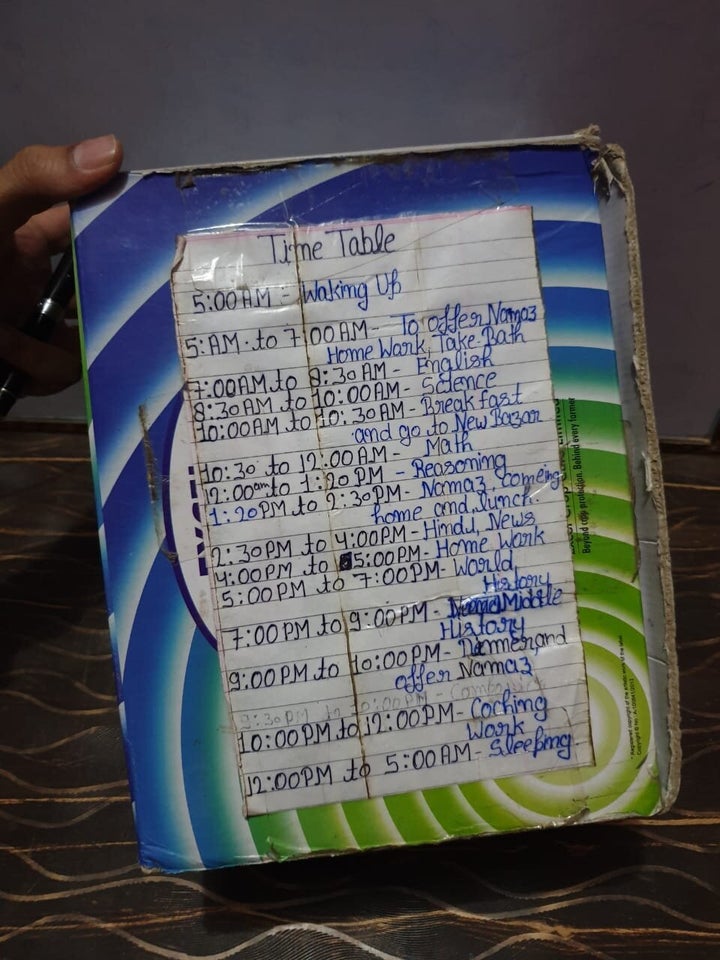 Time Table
5:00 AM - Waking Up
5:AM. to 7:00 AM - To offer Namaz
Home Work, Take Bath
7:00 AM. to 8:30 AM - English
8:30 AM. to 10:00 AM - Science
10:00 AM to 10:30 AM - Breakfast
and go to New Bazar
10:30 to 12:00 AM - Math
12:00 am to 1:20 PM - Reasoning
1:20 PM to 2:30 PM - Namaz, Comeing
home and lunch
2:30 PM to 4:00 PM - Hindu, News
4:00 PM to 5:00 PM - Home Work
5:00 PM to 7:00 PM - World
History
7:00 PM to 9:00 PM - Middle
History
9:00 PM to 10:00 PM - Dinner, and
offer Namaz
9:30 PM to
10:00 PM to 12:00 PM - Coching
Work
12:00 PM to 5:00 AM - Sleeping
Beyond crop protection. Behind every farmer